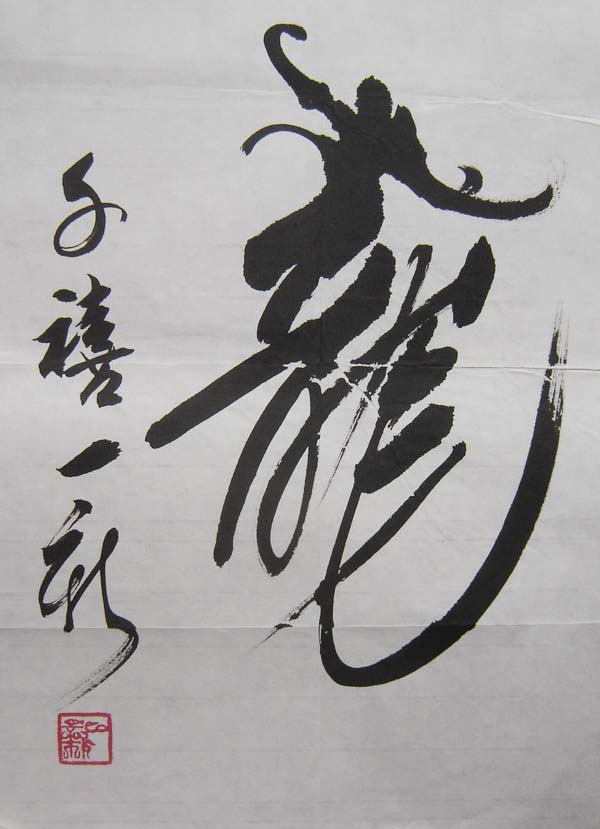 龍
千禧一新